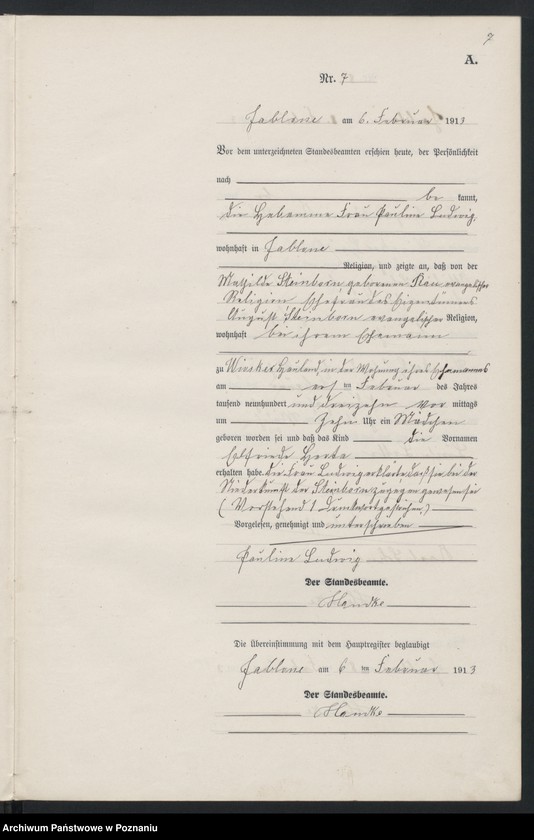 7
A.
Nr. 7
Jablone am 6. Februar 1913
Vor dem unterzeichneten Standesbeamten erschien heute, der Persönlichkeit
nach
be kannt,
die Hebamme Frau Pauline Ludwig,
wohnhaft in Jablone
Religion, und zeigte an, daß von der
Mathilde Steinborn geborenen Rau evangelischer
Religion Ehefrau des Eigentümers
August Steinborn evangelischer Religion,
wohnhaft bei ihrem Ehemann
zu Hauland, in der Wohnung ihres Ehemannes
am ten Februar des Jahres
tausend neunhundert und dreizehn Vor mittags
um Zehn Uhr ein Mädchen
geboren worden sei und daß das Kind die Vornamen
Elfriede Herta
erhalten habe. Die Frau Ludwig erklärte, daß sie bei der
Niederkunft der Steinborn zugegen gewesen sei
(Vorstehend 1 Druckwort gestrichen.)
Vorgelesen, genehmigt und unterschrieben
Pauline Ludwig
Der Standesbeamte.
Die Übereinstimmung mit dem Hauptregister beglaubigt
Jablone am 6 ten Februar 1913
Der Standesbeamte.
Archiwum Państwowe w Poznaniu